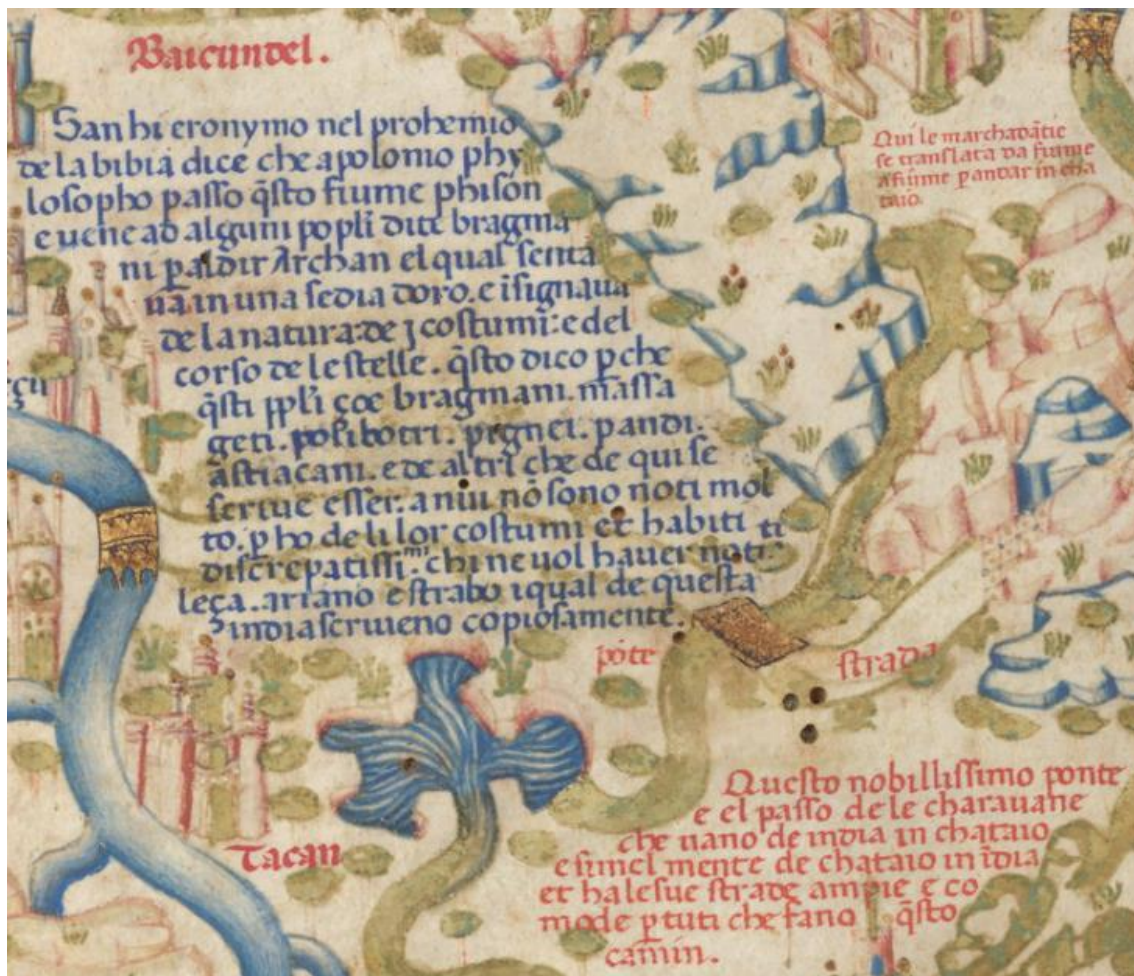 Baicundel.
San hieronymo nel prohemio
de la bibia dice che apolonio phy
losopho passo q̄sto fiume phison
e uene ad alguni popl̄i diti bragma
ni p̱ aldir Archan el qual senta
ua in una sedia doro. e īsignaua
de la natura: de j costumi: e del
corso de le stelle. q̄sto dico p̱che
q̄sti ppl̄i çoe bragmani. massa
geti. posibotri. pignei. pandi.
astiacani. e de altri che de qui se
scriue esser. a niu nō sono noti mol
to. p̱ ho de li lor costumi et habiti
discrepātissimi. chi ne uol hauer noti ti
leça. ariano e strabo i qual de questa
india scriueno copiosamente.
Qui le marchadātie
se translata da fiume
a fiume p̱ andar in cha
taio.
çu
pōte
strada
Tacan
Questo nobillissimo ponte
e el passo de le charauane
che uano de india in chataio
e simel mente de chataio in īdia
et ha le sue strade ampie e co
mode p̱ tuti che fano q̄sto
camin.